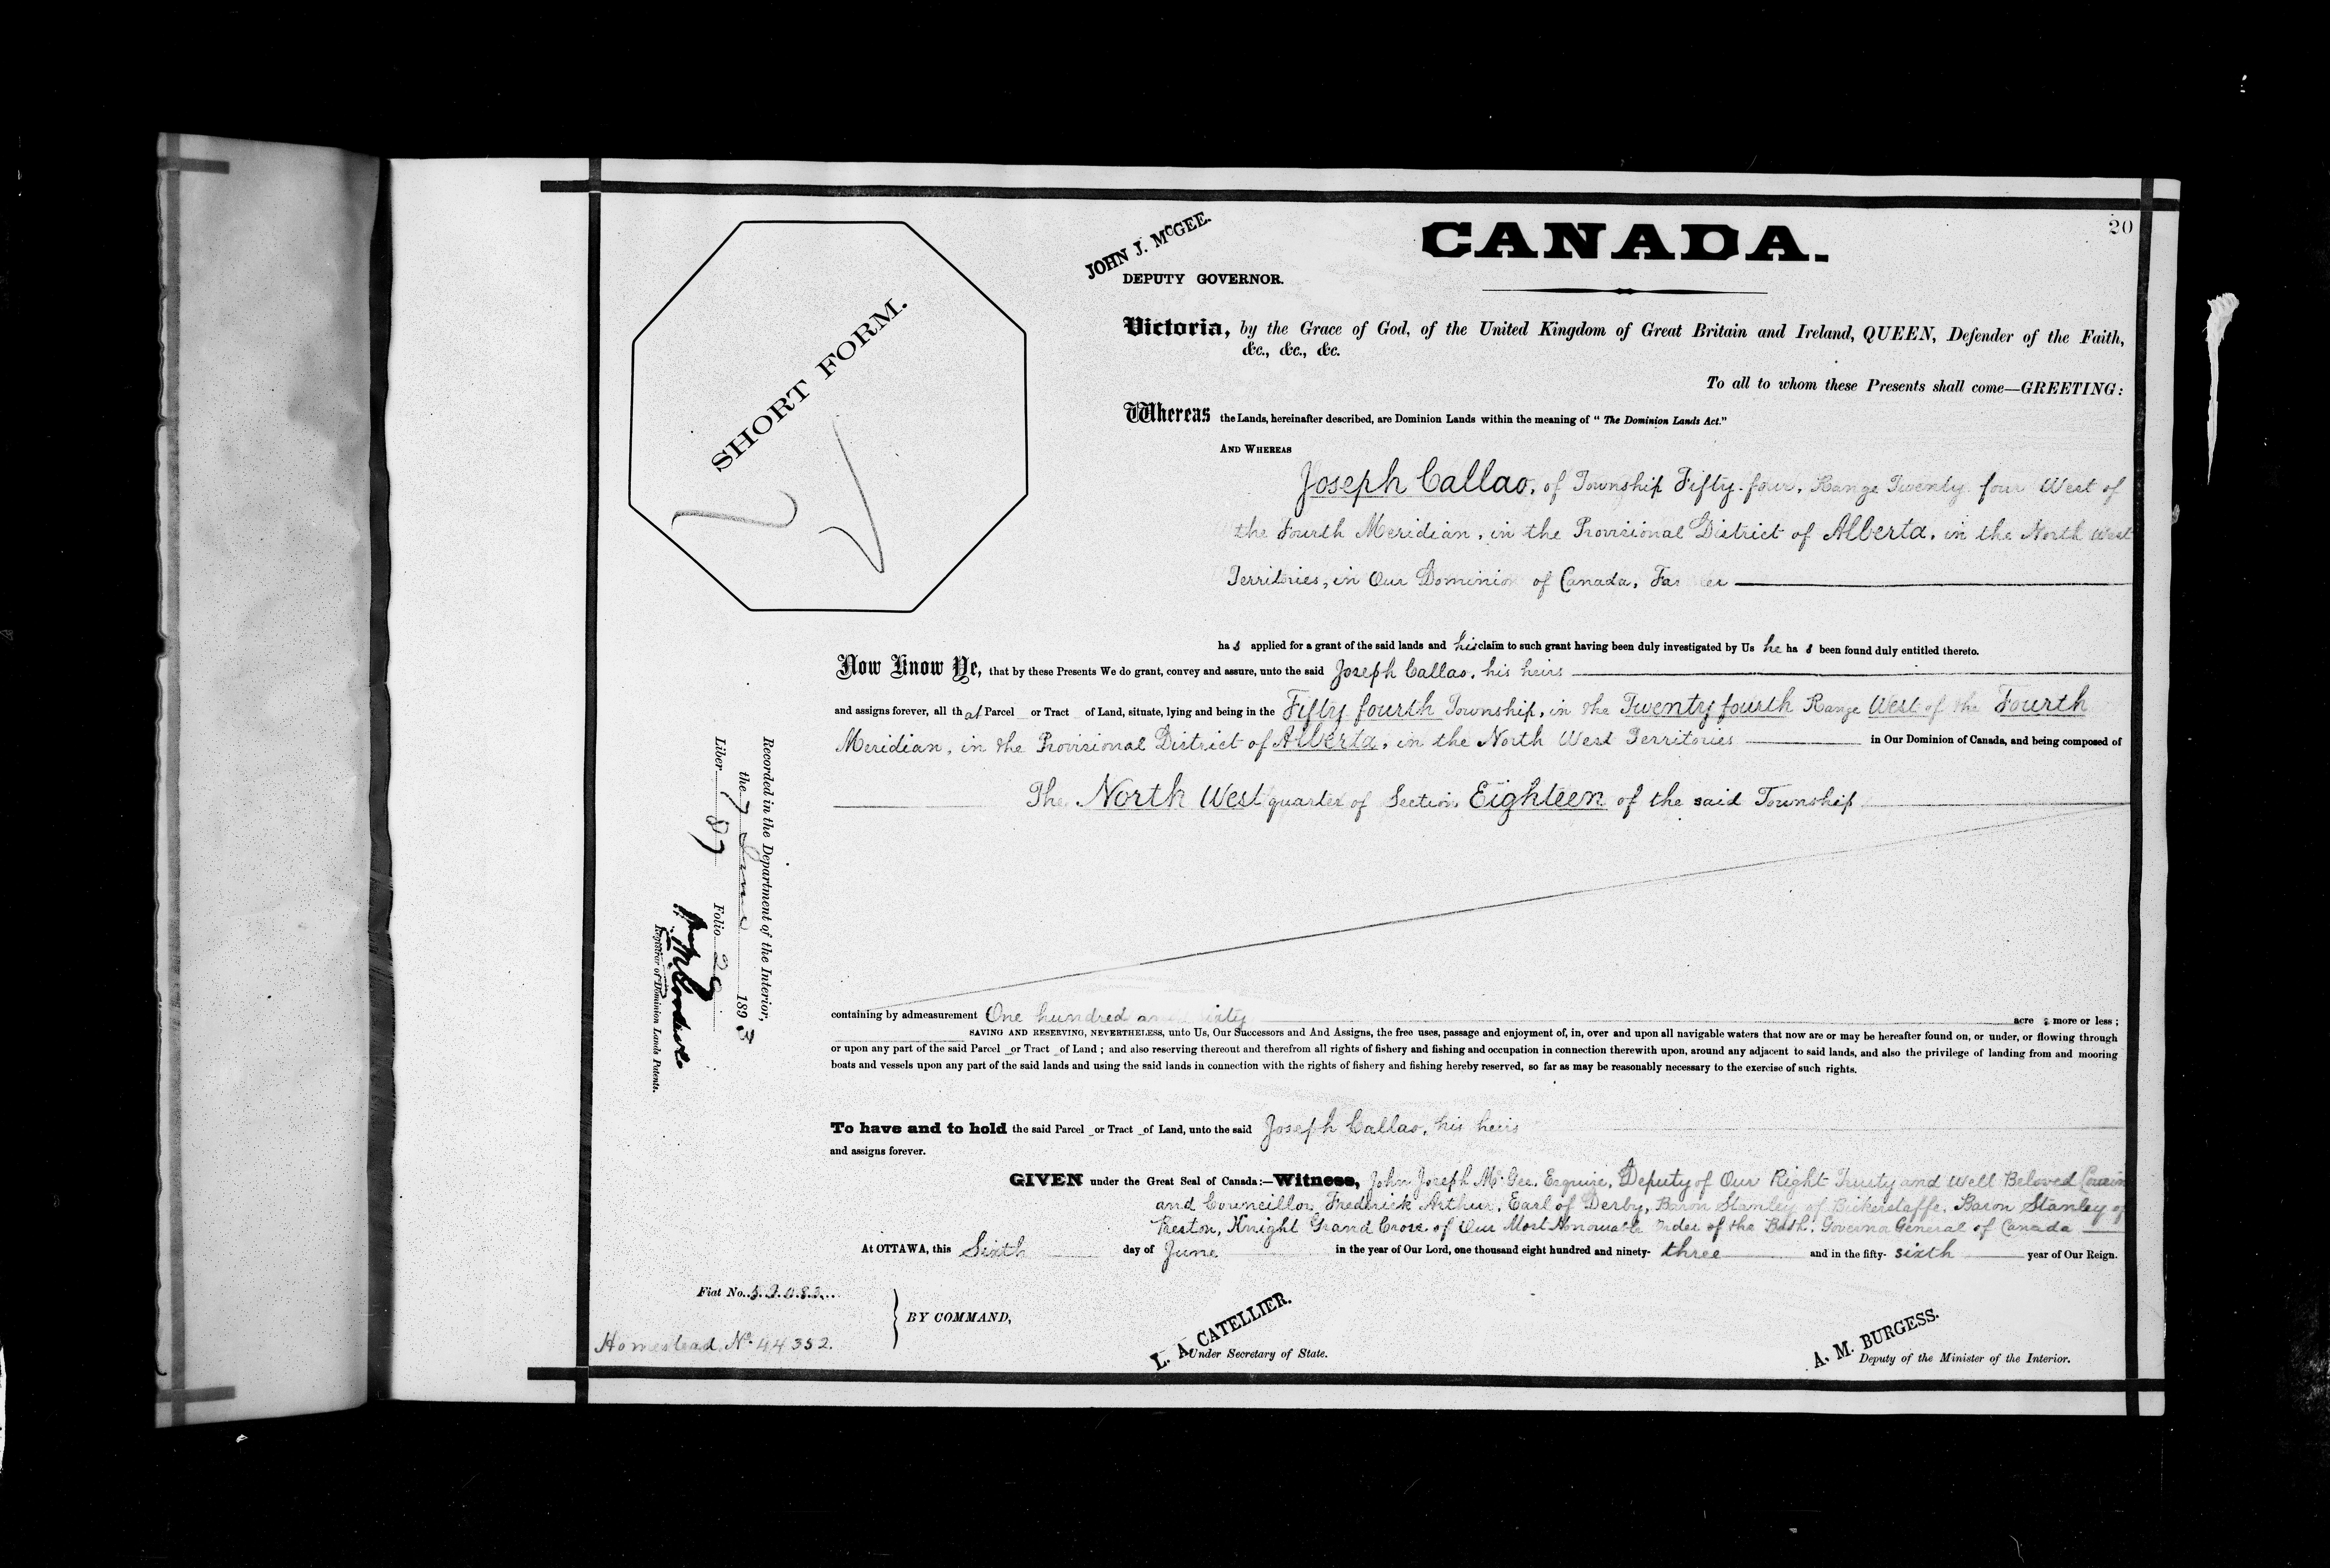 20
CANADA.
JOHN J. McGEE.
DEPUTY GOVERNOR.
SHORT FORM.
Victoria, by the Grace of God, of the United Kingdom of Great Britain and Ireland, QUEEN, Defender of the Faith,
&c., &c., &c.
To all to whom these Presents shall come—GREETING:
Whereas the Lands, hereinafter described, are Dominion Lands within the meaning of "The Dominion Lands Act."
AND WHEREAS
Joseph Callao, of Township Fifty-four, Range Twenty four West of
the Fourth Meridian, in the Provisional District of Alberta, in the North West
Territories, in Our Dominion of Canada, Far er
has applied for a grant of the said lands and his claim to such grant having been duly investigated by Us he has been found duly entitled thereto.
Now Know Ye, that by these Presents We do grant, convey and assure, unto the said Joseph Callao, his heirs
and assigns forever, all that Parcel or Tract of Land, situate, lying and being in the Fifty fourth Township, in the Twenty fourth Range West of the Fourth
Meridian, in the Provisional District of Alberta, in the North West Territories in Our Dominion of Canada, and being composed of
The North West quarter of Section Eighteen of the said Township
containing by admeasurement One hundred and sixty acres more or less;
SAVING AND RESERVING, NEVERTHELESS, unto Us, Our Successors and And Assigns, the free uses, passage and enjoyment of, in, over and upon all navigable waters that now are or may be hereafter found on, or under, or flowing through
or upon any part of the said Parcel or Tract of Land; and also reserving thereout and therefrom all rights of fishery and fishing and occupation in connection therewith upon, around any adjacent to said lands, and also the privilege of landing from and mooring
boats and vessels upon any part of the said lands and using the said lands in connection with the rights of fishery and fishing hereby reserved, so far as may be reasonably necessary to the exercise of such rights.
To have and to hold the said Parcel or Tract of Land, unto the said Joseph Callao, his heirs
and assigns forever.
GIVEN under the Great Seal of Canada:—Witness, John Joseph McGee, Esquire, Deputy of Our Right Trusty and Well Beloved Cousin
and Councillor, Frederick Arthur, Earl of Derby, Baron Stanley of Bickerstaffe, Baron Stanley of
Preston, Knight Grand Cross of Our Most Honourable Order of the Bath, Governor General of Canada
At OTTAWA, this Sixth day of June in the year of Our Lord, one thousand eight hundred and ninety-three and in the fifty-sixth year of Our Reign.
Fiat No. 52083
BY COMMAND,
Homestead No. 44352.
L. A. CATELLIER.
Under Secretary of State.
A. M. BURGESS.
Deputy of the Minister of the Interior.
Recorded in the Department of the Interior,
the 7 June 1893
Liber 87 Folio 20
Registrar of Dominion Lands Patents.